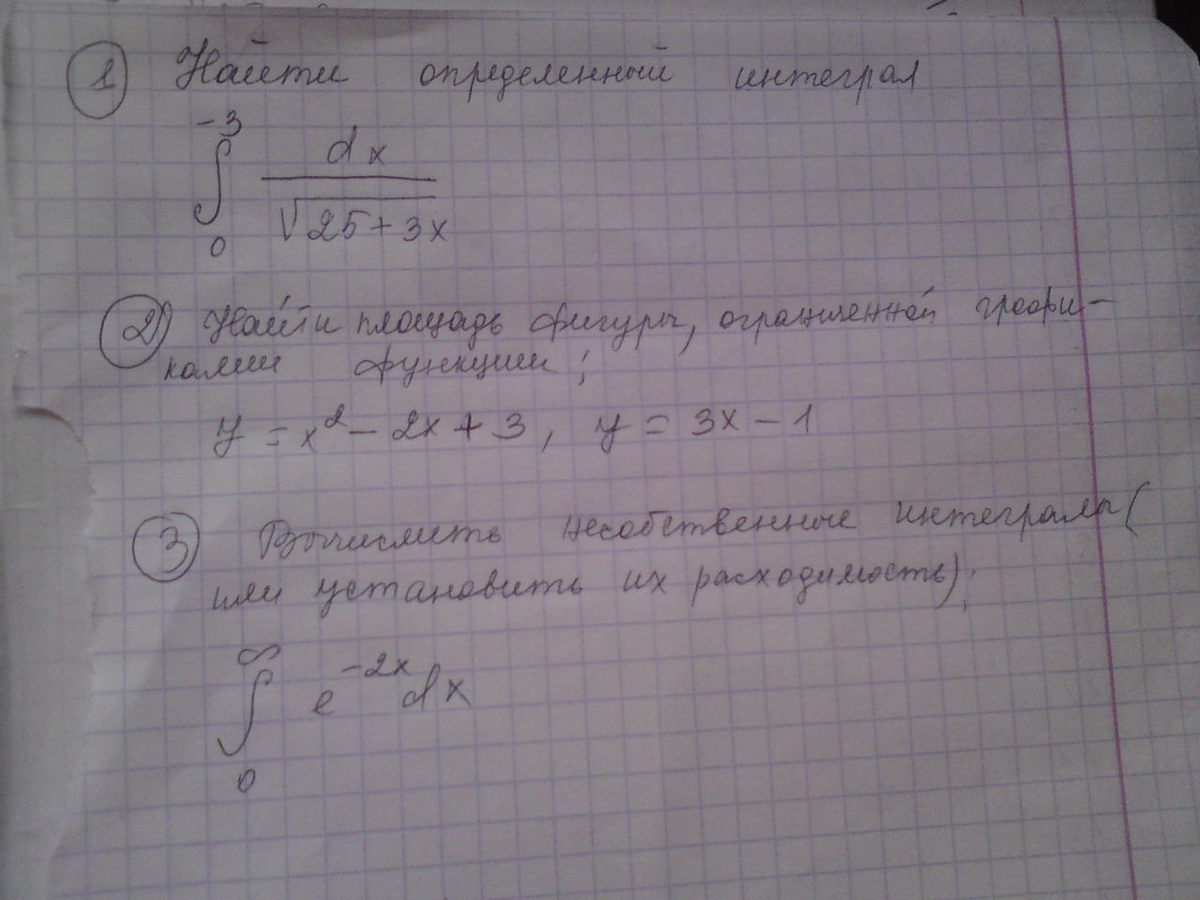 1 Найти определенный интеграл
-3
∫ dx / √25+3x
0
2 Найти площадь фигуры, ограниченной графи-
ками функции;
y = x² - 2x + 3, y = 3x - 1
3 Вычислить несобственные интегралы (
или установить их расходимость);
∞
∫ e^-2x dx
0